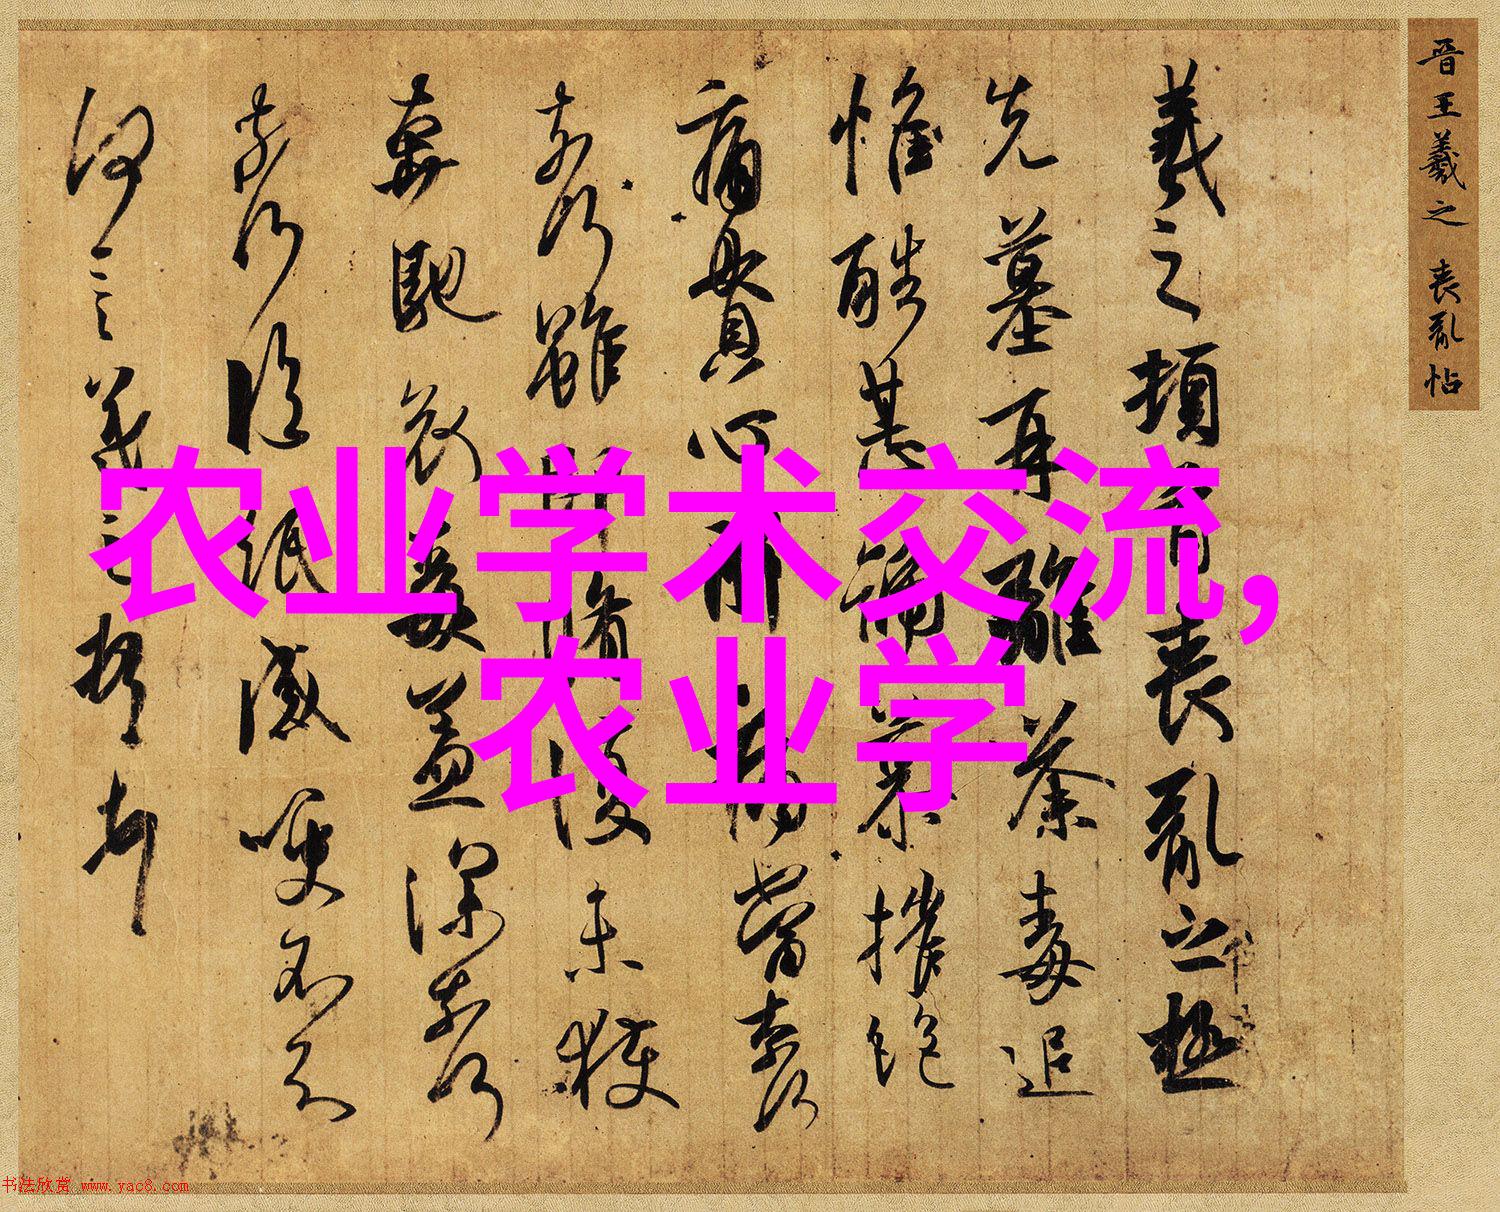 农业学术交流,
农业学
晋王羲之 喪亂帖
羲之頓首喪亂之極
先墓再離荼毒追
惟酷甚號慕摧絶
痛貫心肝痛當奈何
奈何雖即脩復未獲
奔馳哀毒益深奈何
奈何臨紙感哽不知
何言羲之頓首
书法欣赏 www.yac8.com